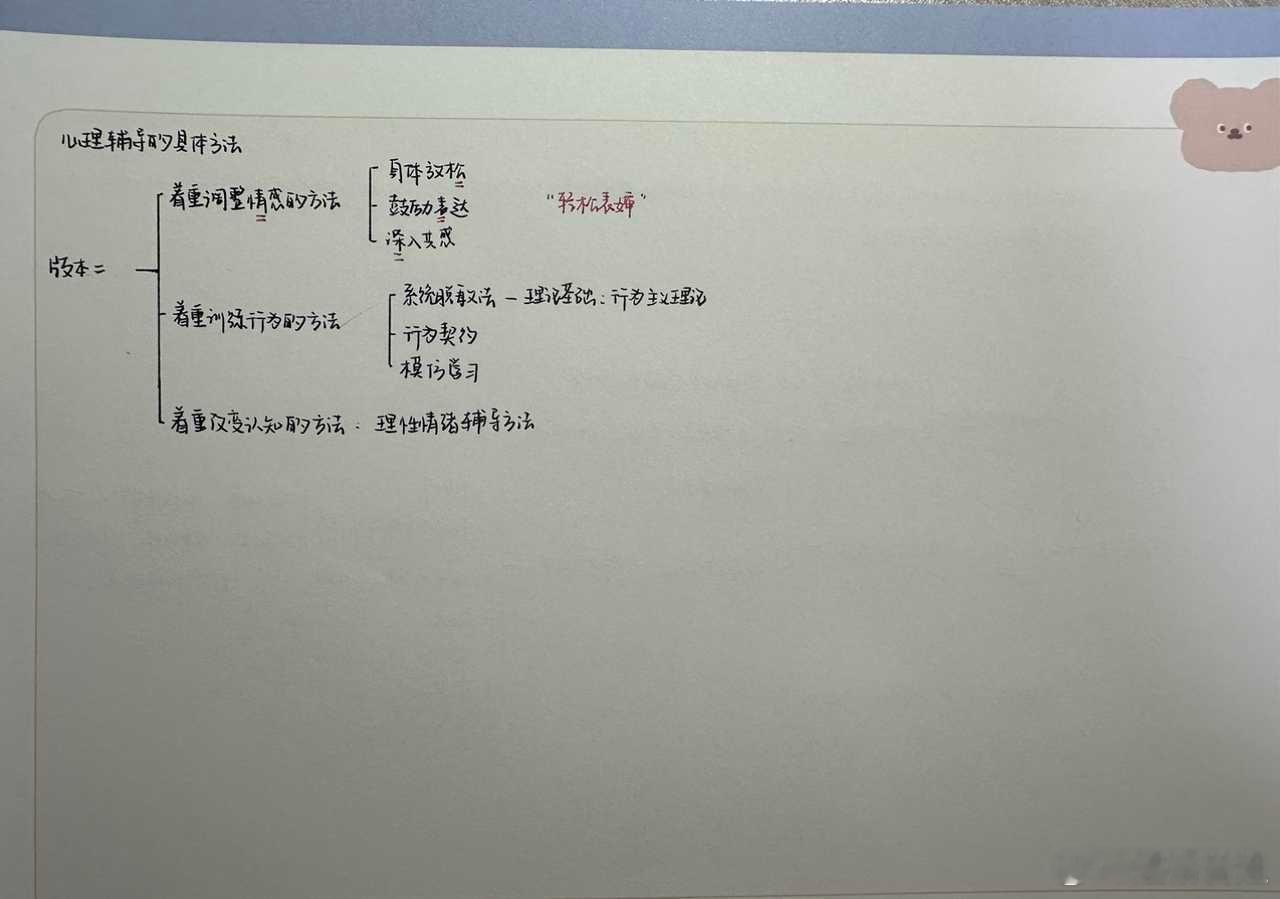 心理辅导的具体方法
版本二
着重调整情感的方法
身体放松
鼓励表达
深入共感
“轻松表婶”
着重训练行为的方法
系统脱敏法 — 理论基础：行为主义理论
行为契约
模仿学习
着重改变认知的方法：理性情绪辅导方法